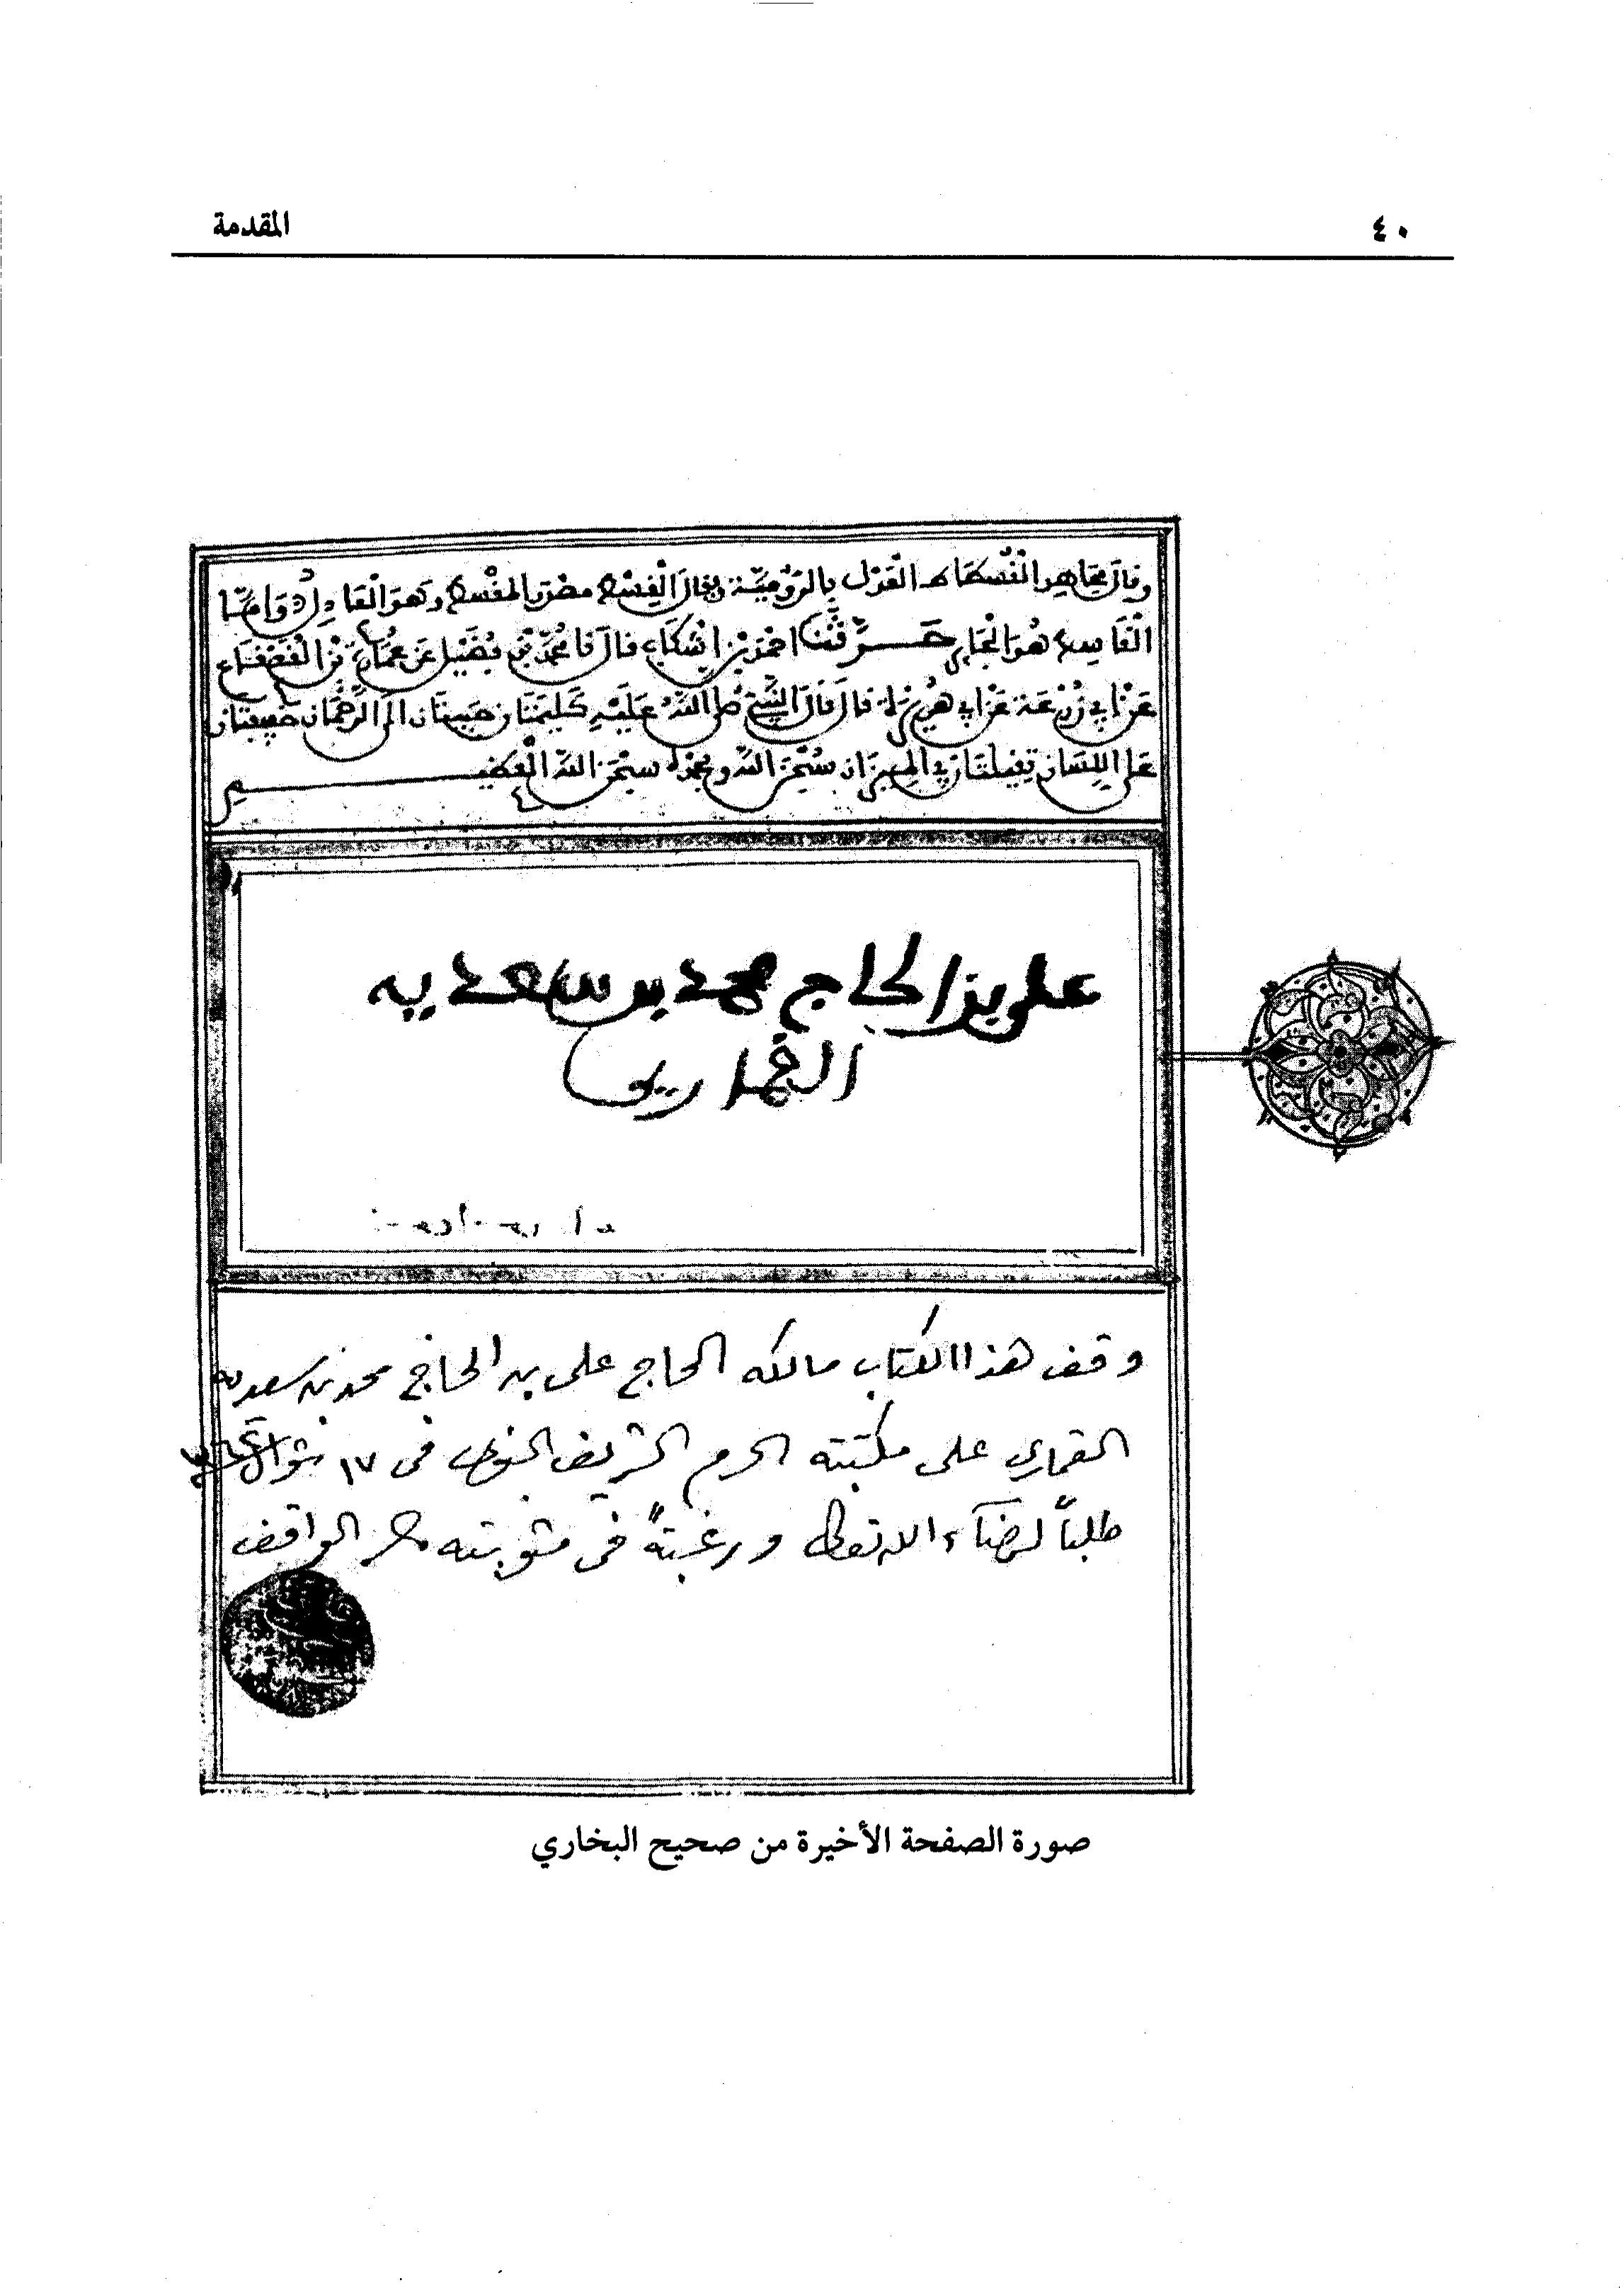 ٤٠
المقدمة
وقال مجاهد القسطاس العدل بالرومية ويقال القسط مصدر المقسط وهو العادل وأما
القاسط هو الجاير حدثنا احمد بن إشكاب قال نا محمد بن فضيل عن عمارة بن القعقاع
عن أبي زرعة عن أبي هريرة قال قال النبي صلى الله عليه كليمتان حبيبتان الى الرحمان خفيفتان
على اللسان ثقيلتان في الميزان سبحن الله وبحمده سبحن الله العظيم
علي بن الحاج محمد بن سعديه
القماري
وقف هذا الكتاب مالكه الحاج على بن الحاج محمد بن سعديه
القماري على مكتبته الحرم الشريف النبوي في ١٧ شوال
طلباً لرضآء الله تعالى ورغبتهً في مثوبته الواقف
صورة الصفحة الأخيرة من صحيح البخاري